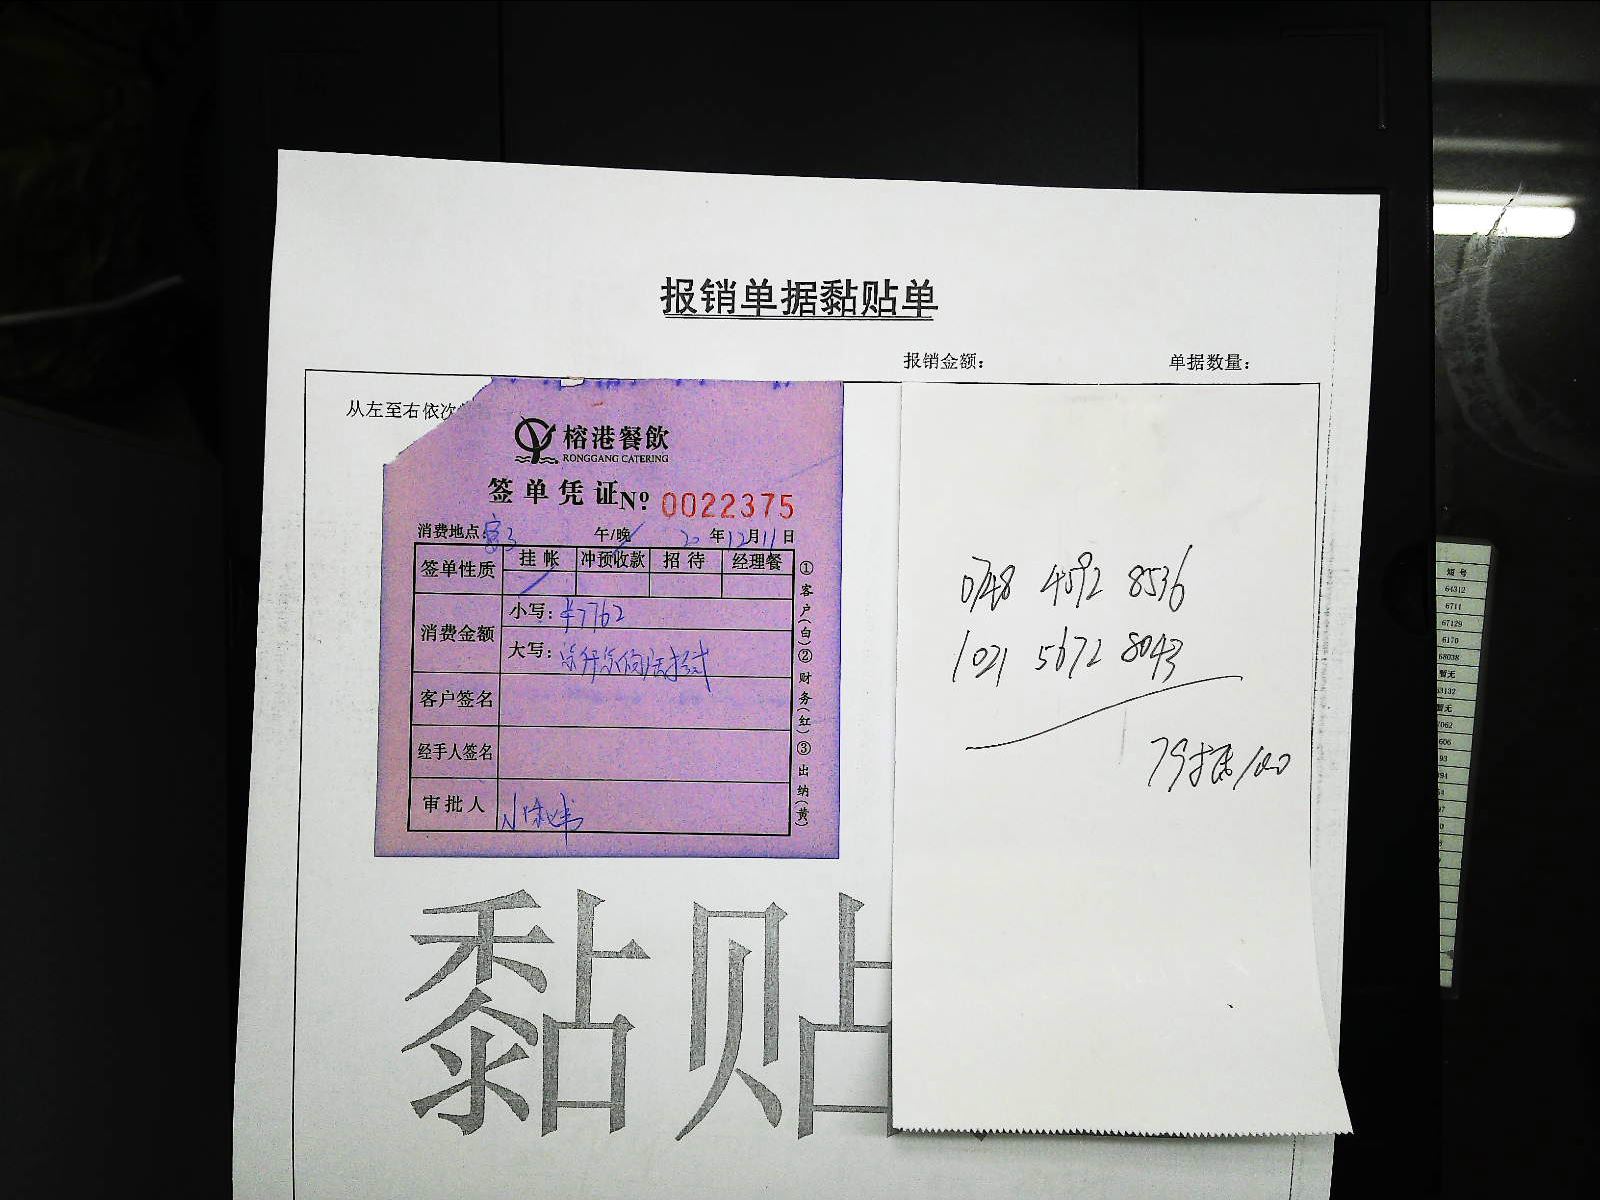 报销单据黏贴单
报销金额： 单据数量：
从左至右依次
榕港餐飲
RONGGANG CATERING
签单凭证 Nº 0022375
消费地点 午/晚 20年12月11日
签单性质 挂帐 冲预收款 招待 经理餐
消费金额 小写：¥7762
大写：
客户签名
经手人签名
审批人
①客户(白)②财务(红)③出纳(黄)
0748 4592 8536
1021 5672 8043
黏贴
短号
64312
6711
67129
6170
68038
暂无
63132
暂无